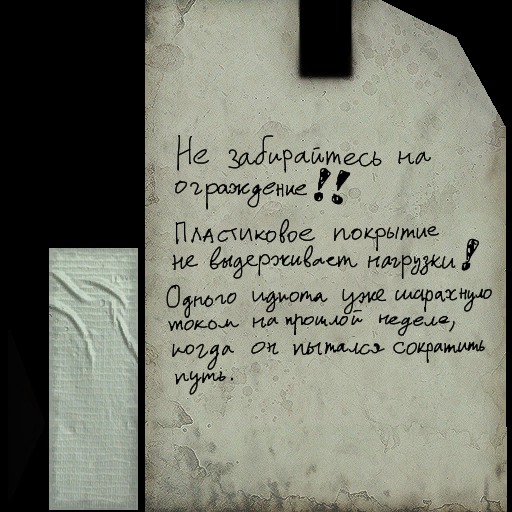 Не забирайтесь на
ограждение!!
Пластиковое покрытие
не выдерживает нагрузки!
Одного идиота уже шарахнуло
током на прошлой неделе,
когда он пытался сократить
путь.